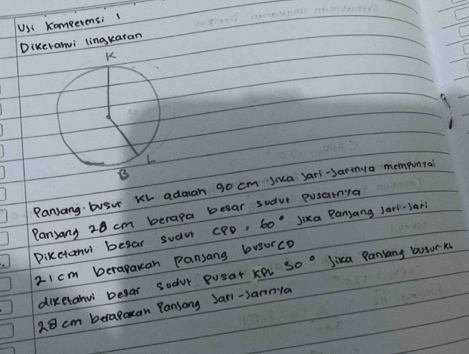 Usi Kompetensi 1
Diketahui lingkaran
K
L
B
Panjang busur KL adalah 90 cm Jika Jari-Jarinya mempunyai
Panjang 28 cm berapa besar sudut pusatnya
Diketahui besar sudut CPD, 60° Jika Panjang Jari-Jari
21 cm berapakah Panjang busur CD
diketahui besar sudut pusat KPL 30° Jika Panjang busur KL
28 cm berapakah Panjang Jari-Jarinya